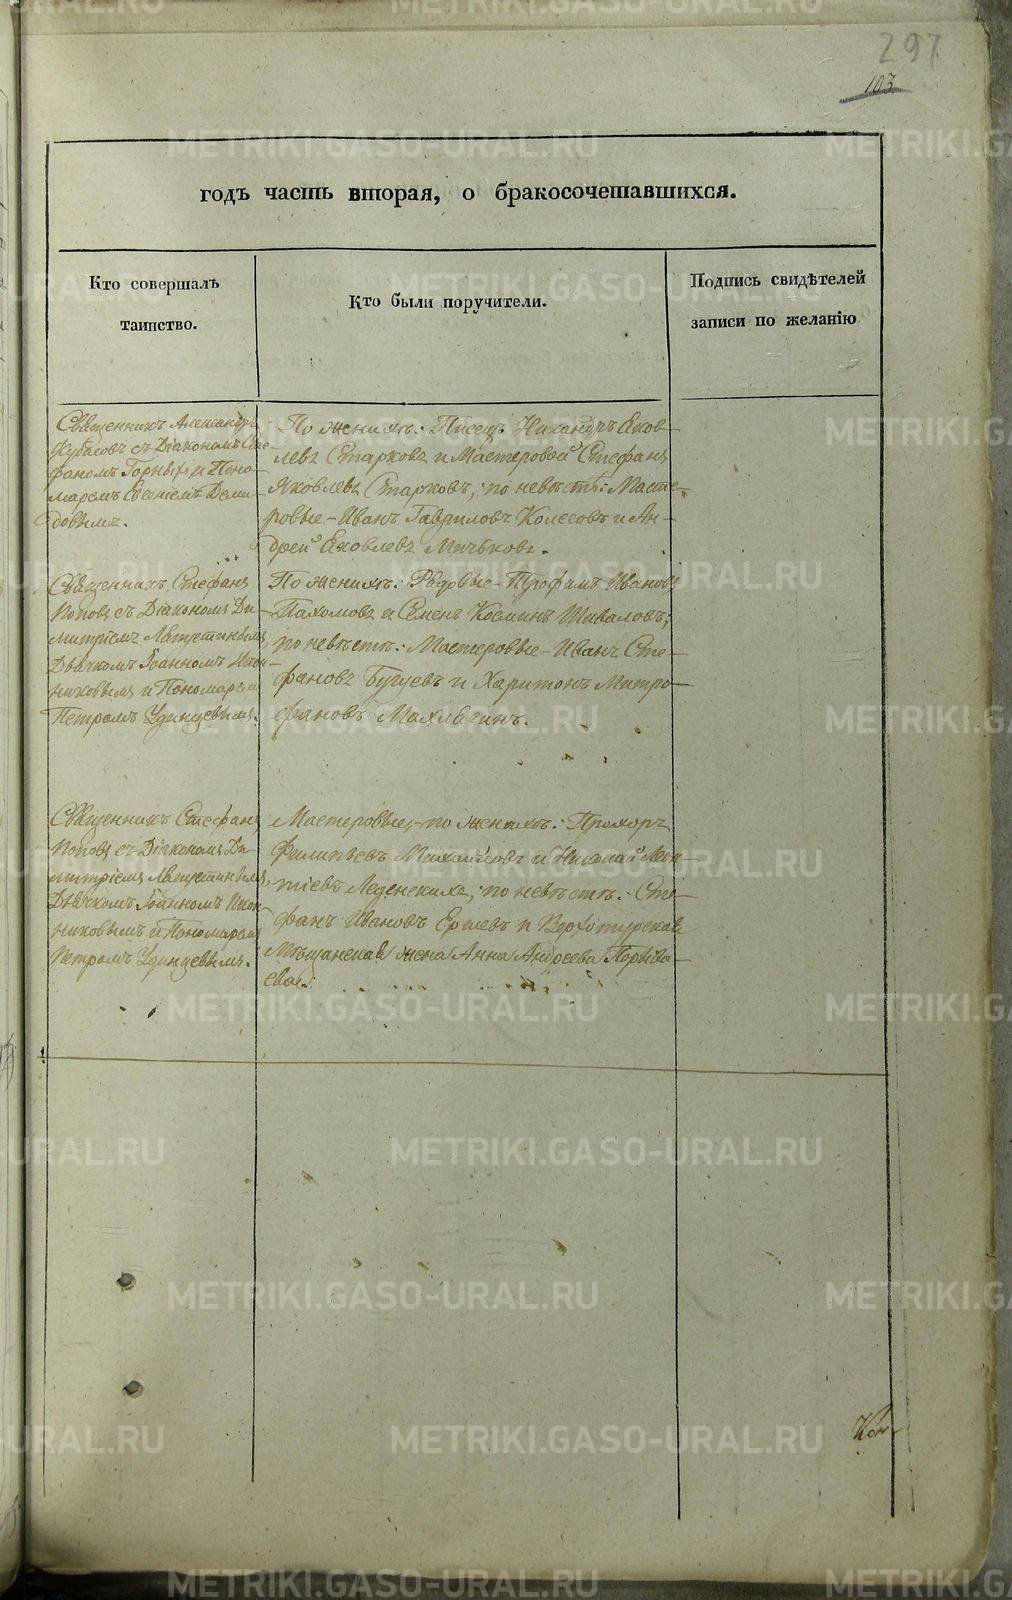 297
103.
годъ часть вторая, о бракосочетавшихся.
Кто совершалъ
таинство.
Кто были поручители.
Подпись свидѣтелей
записи по желанію
Священникъ Александръ
Кубасовъ съ Діакономъ Сте-
фаномъ Горныхъ и Поно-
маремъ Евгеніемъ Деми-
довымъ.
По женихѣ: Писецъ Никандръ Яков-
левъ Старковъ и Мастеровой Стефанъ
Яковлевъ Старковъ; по невѣстѣ: Масте-
ровые – Иванъ Гавриловъ Колесовъ и Ан-
дрей Яковлевъ Мичьковъ.
Священникъ Стефанъ
Поповъ съ Діакономъ Ди-
митріемъ Лятустинымъ,
Дьячкомъ Іоанномъ Икон-
никовымъ и Пономаремъ
Петромъ Удинцевымъ.
По женихѣ: Рядовые – Трофимъ Ивановъ
Пахомовъ и Семенъ Козминъ Шиваловъ;
по невѣстѣ: Мастеровые – Иванъ Сте-
фановъ Бугуевъ и Харитонъ Митро-
фановъ Махлягинъ.
Священникъ Стефанъ
Поповъ съ Діакономъ Ди-
митріемъ Лятустинымъ,
Дьячкомъ Іоанномъ Икон-
никовымъ и Пономаремъ
Петромъ Удинцевымъ.
Мастеровые, – по женихѣ: Прохоръ
Филипьевъ Михайловъ и Николай Леон-
тіевъ Леденскихъ; по невѣстѣ: Сте-
фанъ Ивановъ Ершевъ и Верхотурская
Мѣщанская жена Анна Андреева Порыва-
ева.
Кон-
METRIKI.GASO-URAL.RU